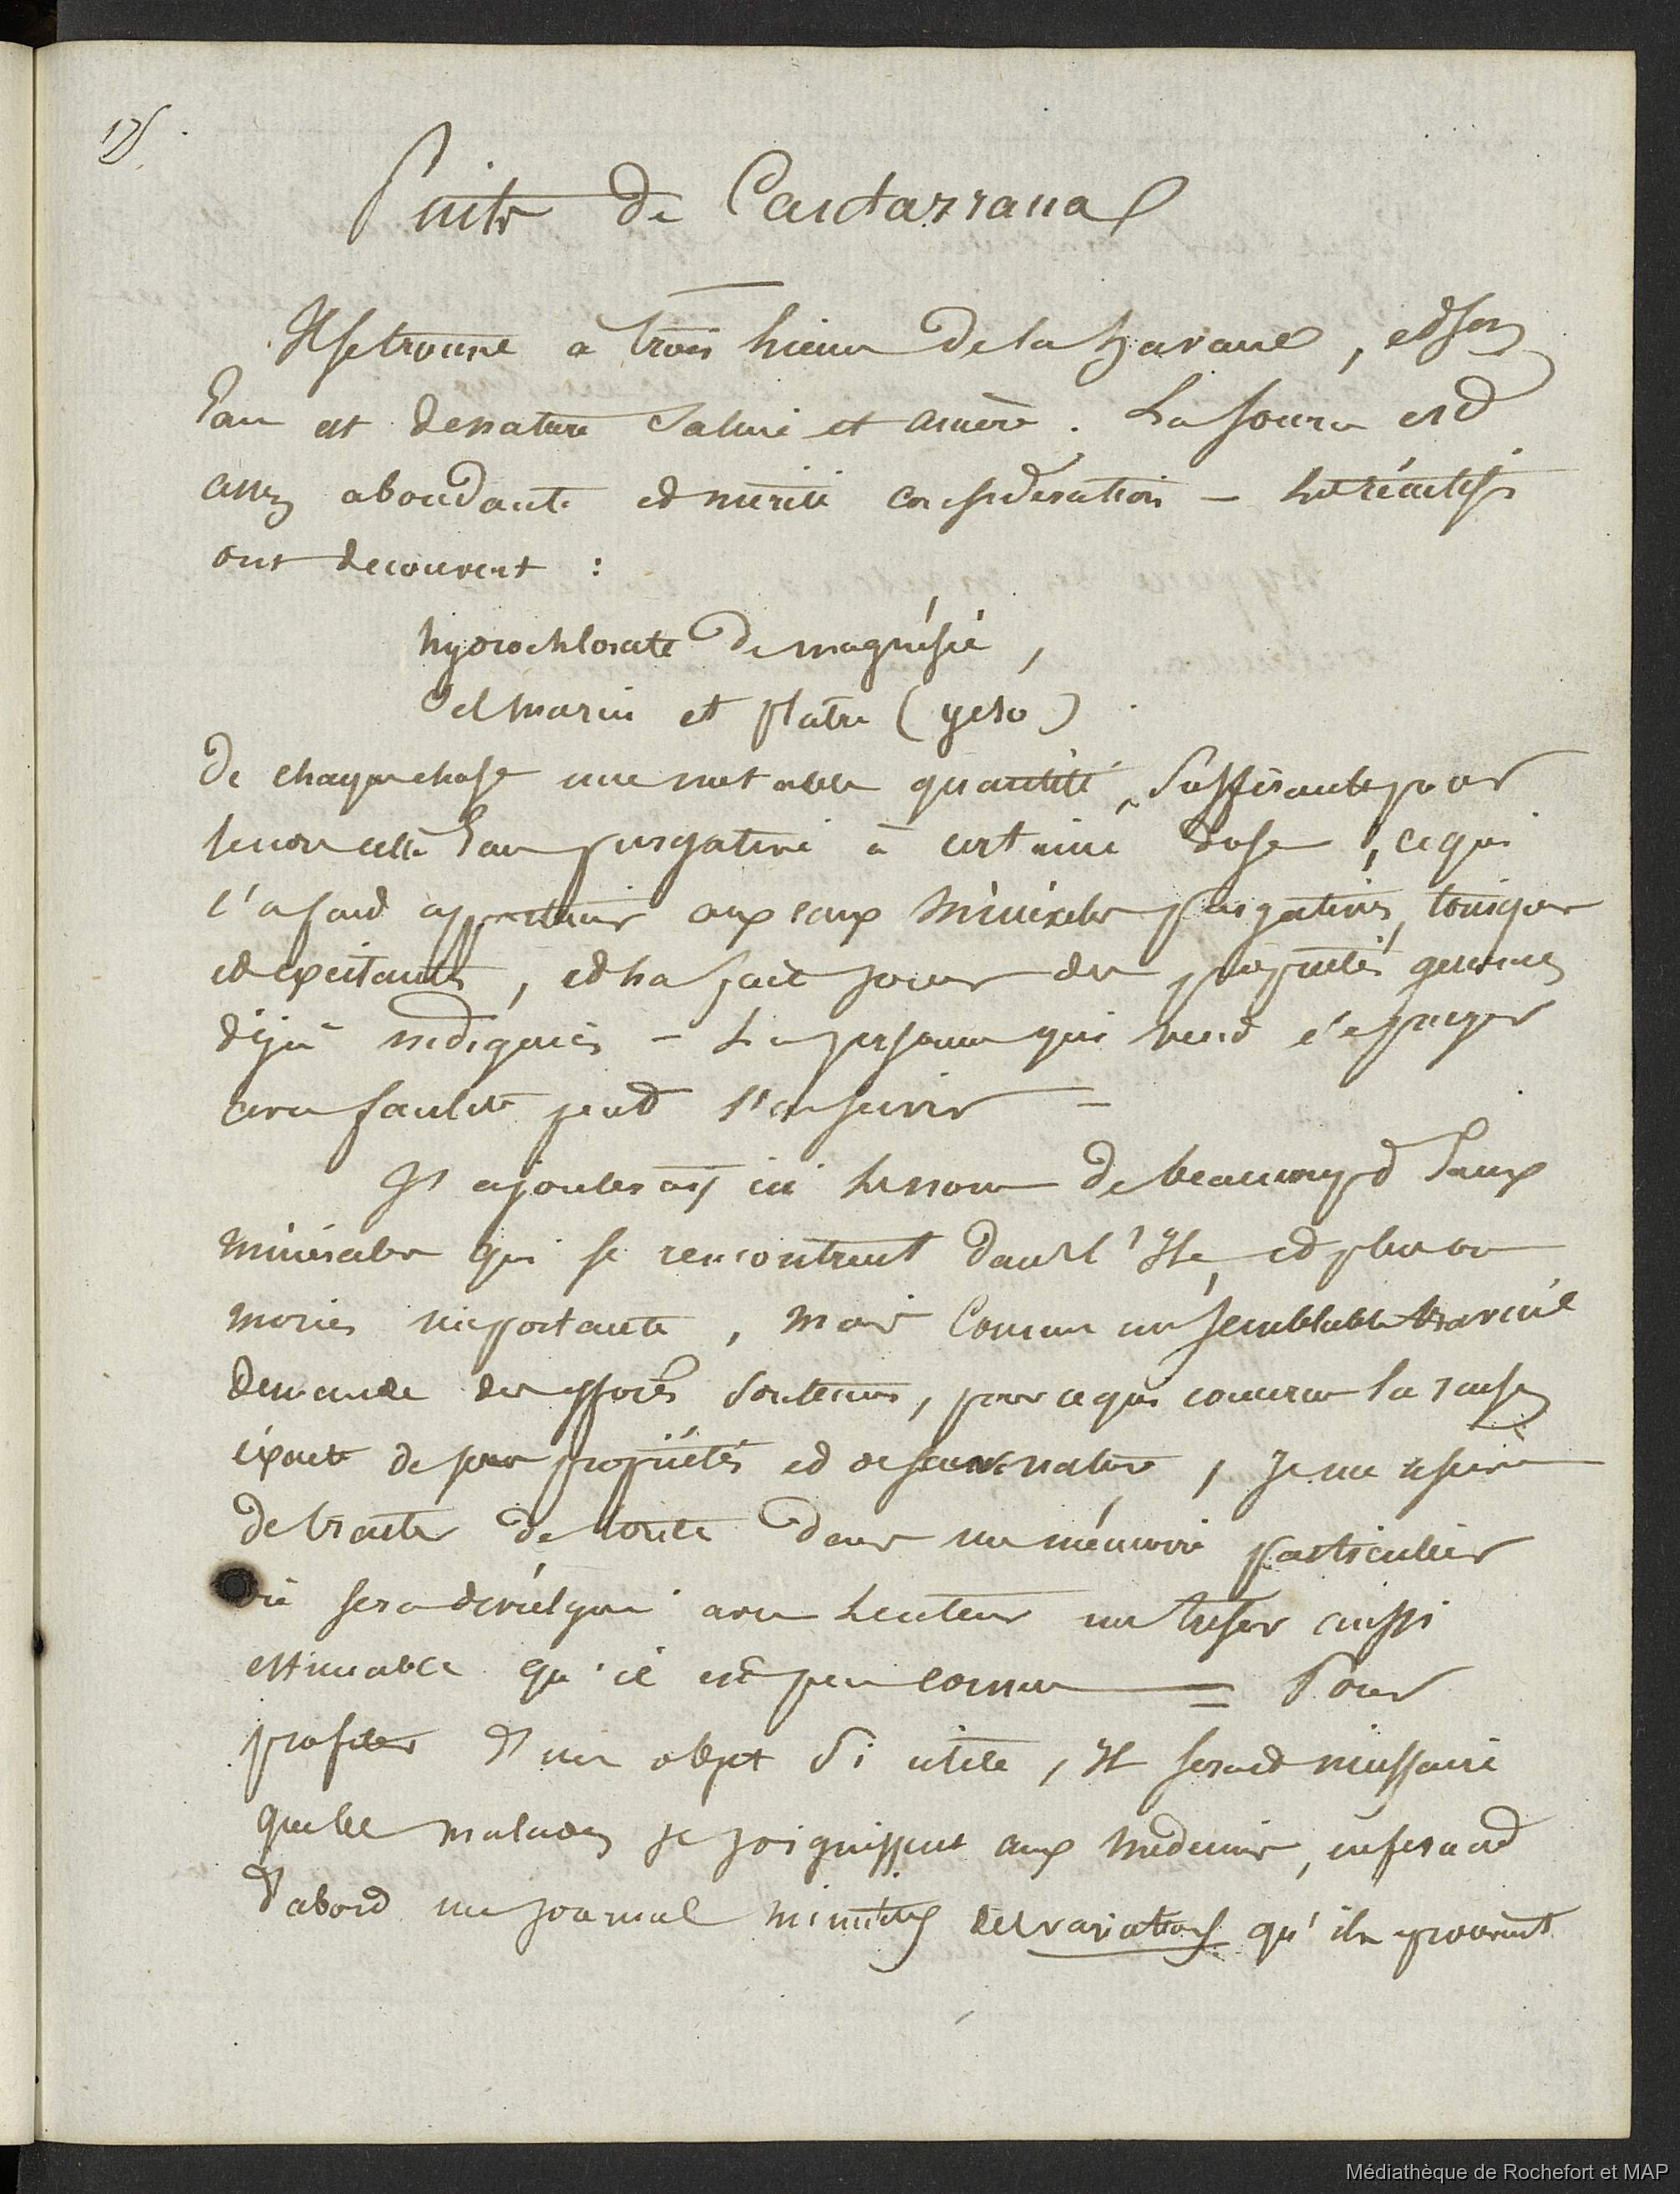 Puits de Cantarrana
Il se trouve à trois lieues de la havane, et son
Eau est de nature Saline et amère. La source est
assez abondante et mérite considération – Les réactifs
ont decouvert :
hydrochlorate de magnésie,
Sel marin et platre (yeso)
de chaque chose une notable quantité, Suffisante pour
rendre cette Eau purgative à certaine dose, ce qui
l'a fait appartenir aux eaux minérales purgatives, toniques
et excitantes, et la fait jouir des propriétés
déjà indiquées – La personne qui veut s'epurger
avec facilité peut s'en servir =
J'ajouterais ici les noms de beaucoup d'Eaux
minérales qui se rencontrent dans l'Ile, et plus ou
moins importantes, mais Comme un semblable travail
demande des efforts Soutenus, pour ce qui concerne la
exacte de leurs propriétés et de leur nature, Je me réserve
de traiter de toute dans un mémoire particulier
où sera divulgué avec Lenteur un tresor aussi
estimable qu'il est peu connu = Pour
profiter d'un objet Si utile, Il serait nécessaire
que les malades se joignissent aux médecins,
d'abord un journal minutieux des variations qu'ils eprouvent
Médiathèque de Rochefort et MAP